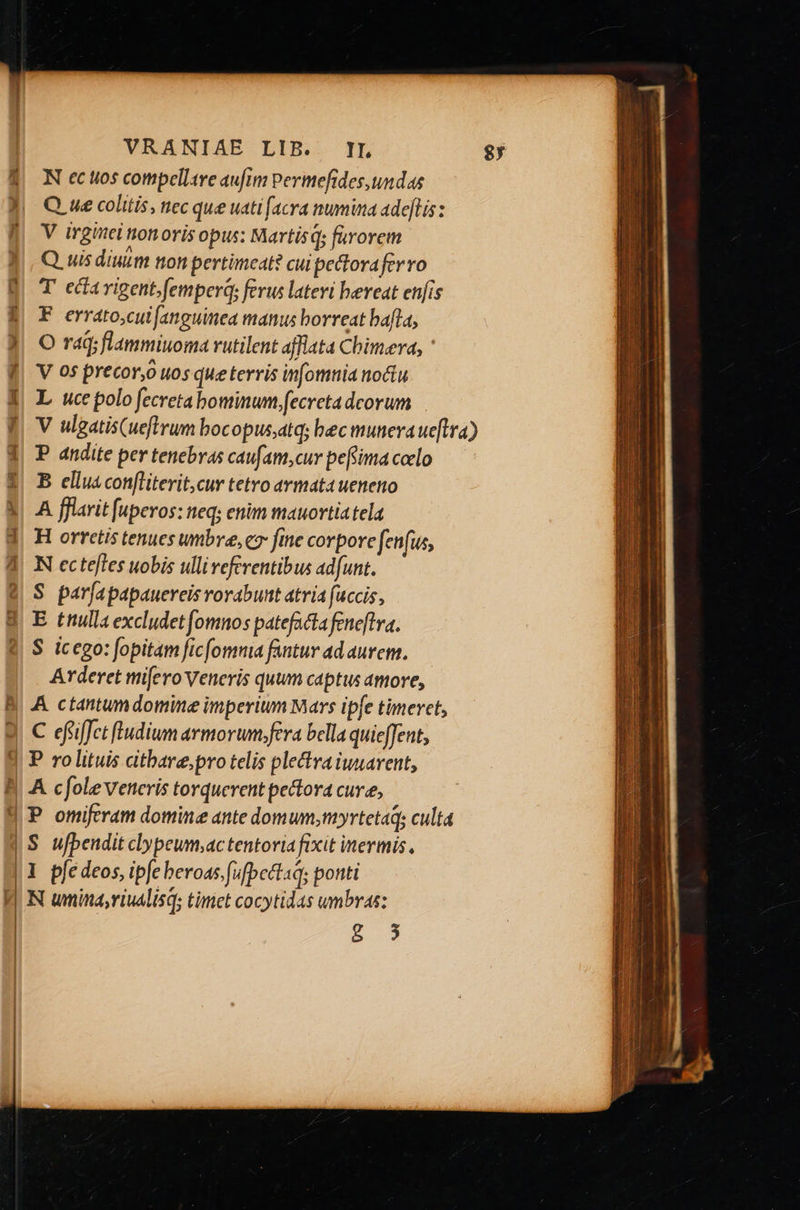 VRANIAE LIB. II. 85
N ec uos compellare ausim Permesides, undas
Q uæ colitis, nec que uati sacra numina adestis:
V irginei non oris opus: Martisq; furorem
Q uis diuûm non pertimeat? cui pectora ferro
T ecta rigent, semperq; ferus lateri hæreat ensis
F errato, cui sanguinea manus horreat hasta,
O raq; flammiuoma rutilent afflata Chimæra,
V os precor, ô uos que terris insomnia noctu
L uce polo secreta hominum, secreta deorum
V ulgatis (uestrum hoc opus, atq; hæc munera uestra)
P andite per tenebras causam, cur pessima cœlo
B ellua constiterit, cur tetro armata ueneno
A fflarit superos: neq; enim mauortia tela
H orretis tenues umbræ, & sine corpore sensus,
N ec testes uobis ulli referentibus adsunt.
S parsa papauereis rorabunt atria succis,
E t nulla excludet somnos patefacta fenestra.
S ic ego: sopitam sic somnia fantur ad aurem.
Arderet misero Veneris quum captus amore,
A c tantum dominæ imperium Mars ipse timeret,
C essisset studium armorum, fera bella quiessent,
P ro lituis citharæ, pro telis plectra iuuarent,
A c sole Veneris torquerent pectora curæ,
P omiferam dominæ ante domum, myrtetaq; culta
S uspendit clypeum, ac tentoria fixit inermis,
I pse deos, ipse heroas, suspectaq; ponti
N umina, riualisq; timet cocytidas umbras:
g 3